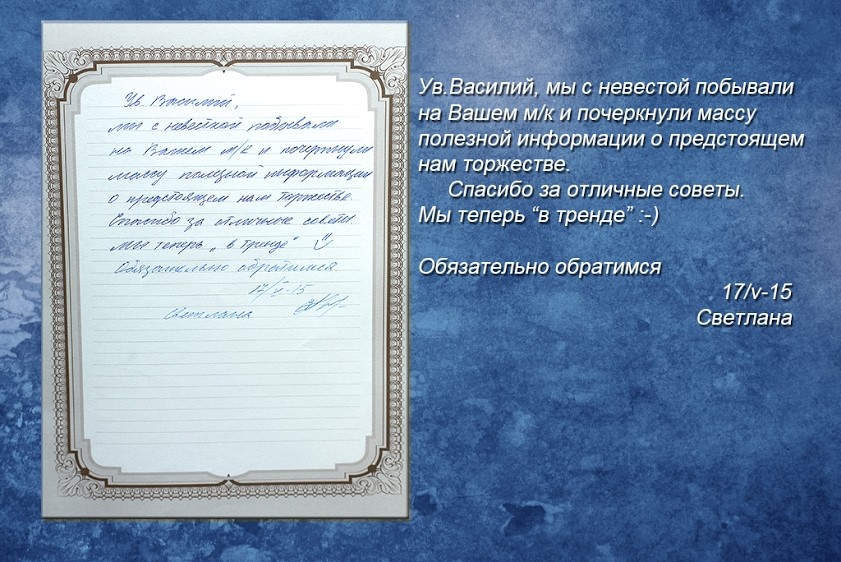 Ув. Василий,
мы с невесткой побывали
на Вашем м/к и почерпнули
массу полезной информации
о предстоящем нам торжестве.
Спасибо за отличные советы.
Мы теперь „в тренде“
Обязательно обратимся.
17/v-15
Светлана
Ув.Василий, мы с невестой побывали
на Вашем м/к и почеркнули массу
полезной информации о предстоящем
нам торжестве.
Спасибо за отличные советы.
Мы теперь “в тренде” :-)
Обязательно обратимся
17/v-15
Светлана